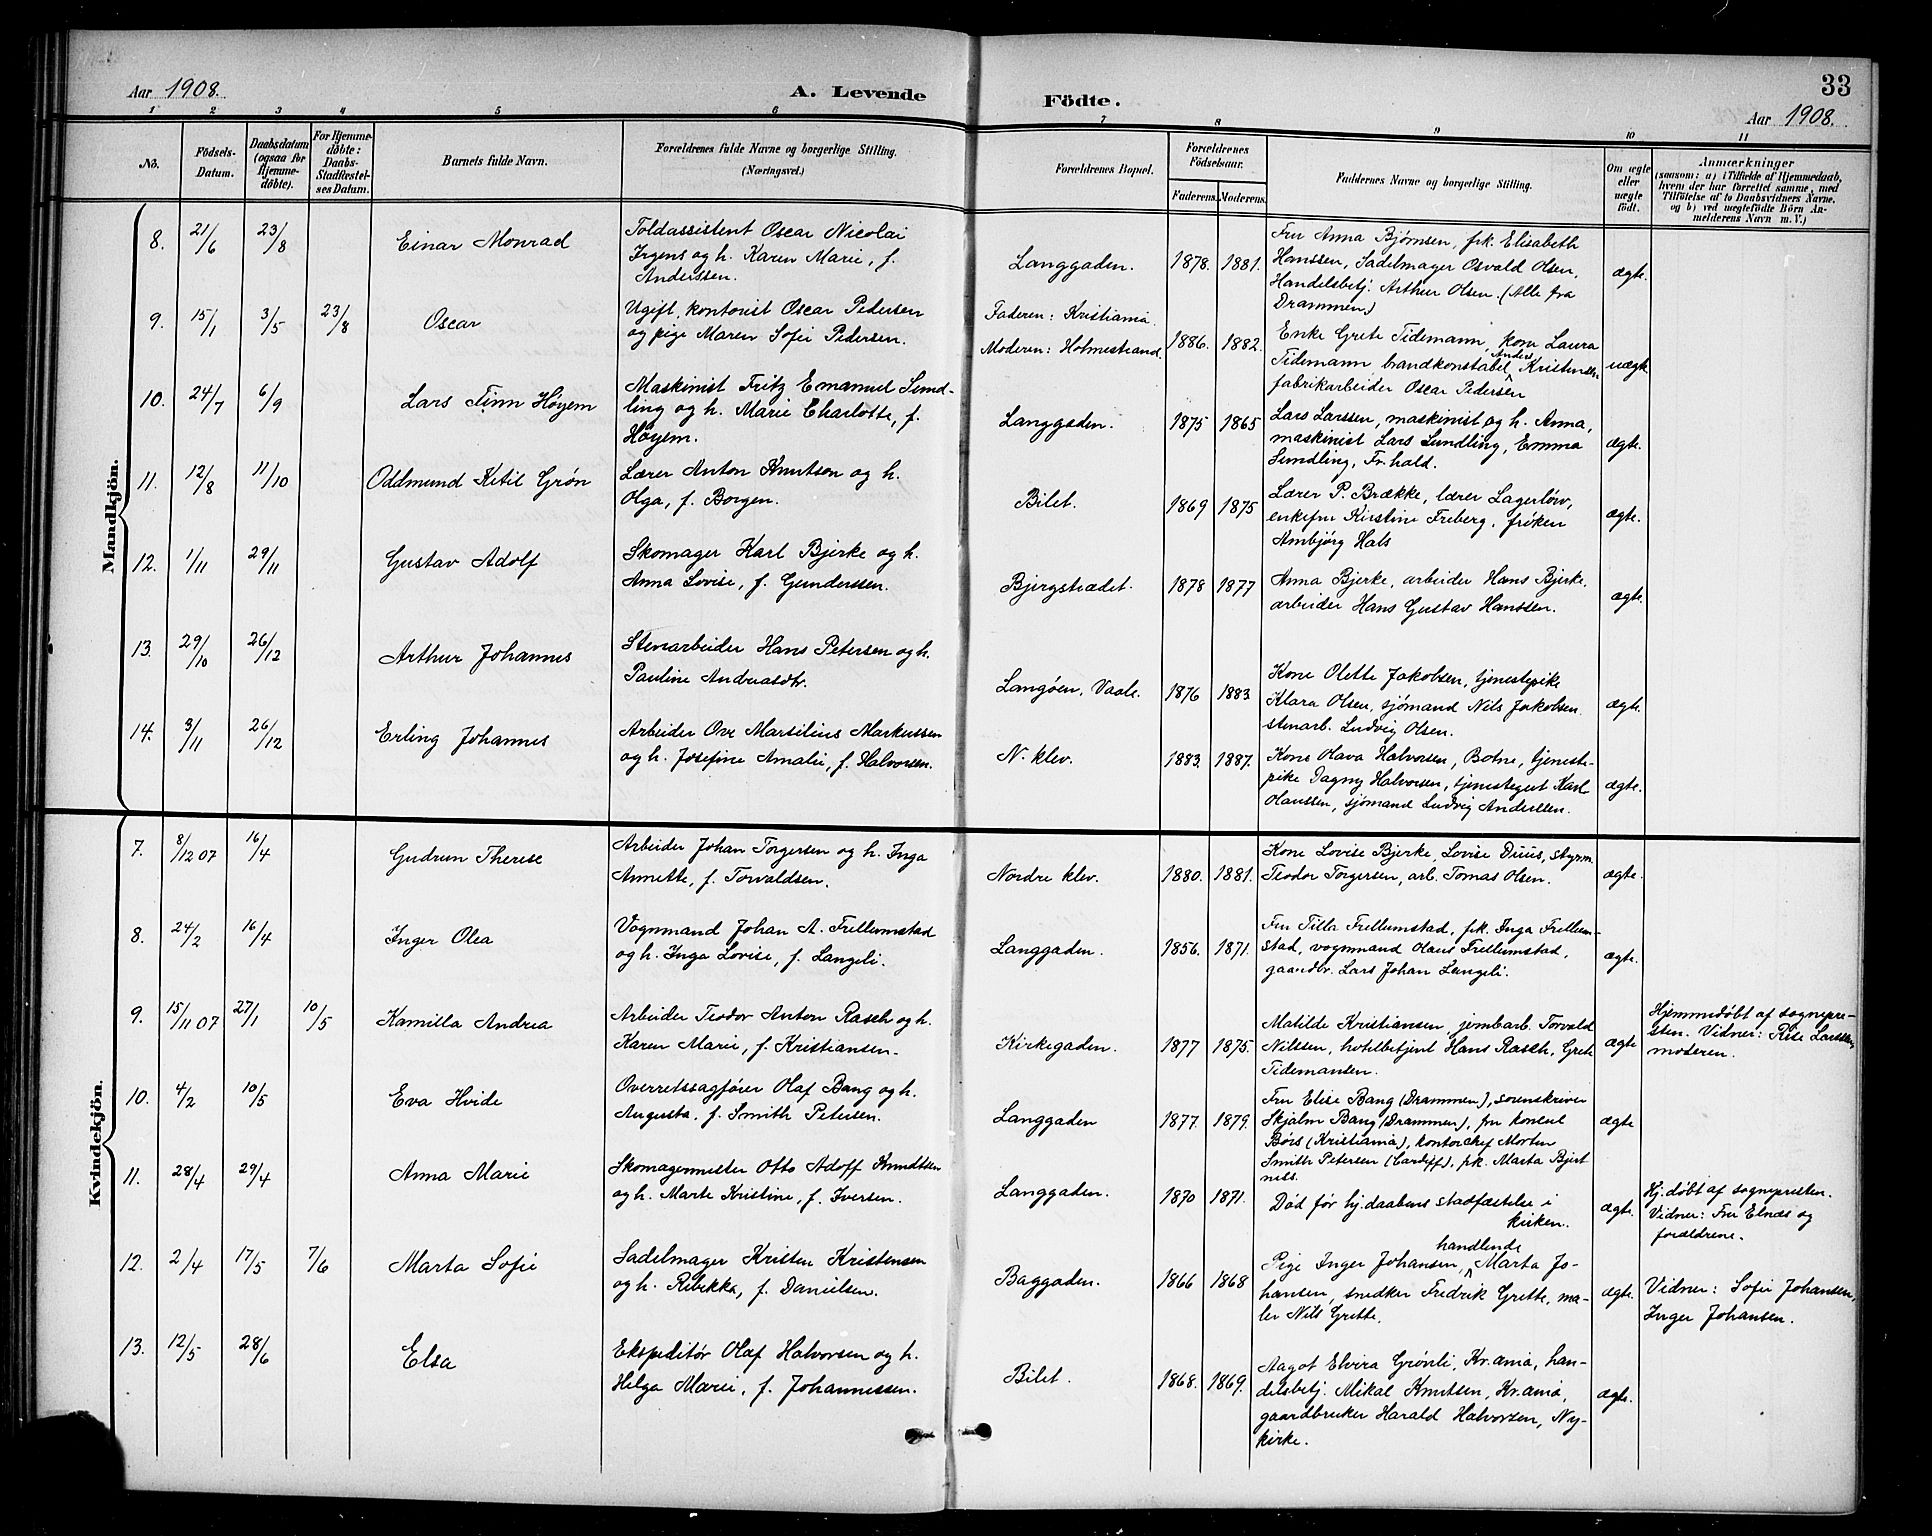 33
Aar 1908.
A. Levende
Födte.
Aar 1908.
1 2 3 4 5 6 7 8 9 10 11
No.
Födsels-
Datum.
Daabsdatum
(ogsaa for
Hjemme-
döbte).
For Hjemme-
döbte:
Daabs-
Stadfæstel-
ses Datum.
Barnets fulde Navn.
Forældrenes fulde Navne og borgerlige Stilling.
(Næringsvei.)
Forældrenes Bopæl.
Forældrenes
Födselsaar.
Faderens. Moderens.
Faddernes Navne og borgerlige Stilling.
Om ægte
eller
uægte
födt.
Anmærkninger
(saasom: a) i Tilfælde af Hjemmedaab,
hvem der har forrettet samme, med
Tilföielse af to Daabsvidners Navne.
og b) ved uægtefödte Börn An-
melderens Navn m. V.)
Mandkjön.
8. 21/6 23/8 Einar Monrad
Toldassistent Oscar Nicolai
Irgens og h. Karen Marie, f.
Anderssen.
Langgaden. 1878. 1881.
Fru Anna Bjørnsen, frk. Elisabeth
Hanssen, Sadelmager Osvald Olsen,
Handelsbetj. Arthur Olsen. (Alle fra
Drammen)
ægte.
9. 15/1 3/5 23/8 Oscar
Ugift kontorist Oscar Pedersen
og pige Maren Sofie Pedersen.
Faderen: Kristiania.
Moderen: Holmestrand. 1886. 1882.
Enke Grete Tidemann, kone Laura
Tidemann brandkonstabel Anders Kristensen
fabrikarbeider Oscar Pedersen
uægte
10. 24/7 6/9 Lars Finn Høyem
Maskinist Fritz Emanuel Lund-
ling og h. Marie Charlotte, f.
Høyem.
Langgaden. 1875 1865
Lars Larssen, maskinist og h. Anna,
maskinist Lars Lundling, Emma
Lundling, Fr.hald.
ægte.
11. 12/8 11/10 Oddmund Ketil Grøn
Lærer Anton Knutson og h.
Olga, f. Borgen.
Bilet. 1869 1875
Lærer P. Brække, lærer Lagerløw,
enkefru Kirstine Freberg, frøken
Ambjørg Hals
ægte.
12. 1/11 29/11 Gustav Adolf
Skomager Karl Bjerke og h.
Anna Lovise, f. Gunderssen.
Bjergstrædet. 1878 1877
Anna Bjerke, arbeider Hans Bjerke,
arbeider Hans Gustav Hanssen.
ægte.
13. 29/10 26/12 Arthur Johannes
Stenarbeider Hans Petersen og h.
Pauline Andreasdtr.
Langöen, Vaale. 1876 1883
Kone Olette Jakobsen, tjenestepike
Klara Olsen, sjømand Nils Jakobsen
stenarb. Ludvig Olsen.
ægte.
14. 3/11 26/12 Erling Johannes
Arbeider Ove Marsilius Markussen
og h. Josefine Amalie, f. Halvorsen.
N. klev. 1883. 1887.
Kone Olava Halvorsen, Botne, tjeneste-
pike Dagny Halvorsen, tjenestegut Karl
Olaussen, sjømand Ludvig Anderssen.
ægte.
Kvindekjön.
7. 8/12 07 16/4 Gudrun Therese
Arbeider Johan Torgersen og h. Inga
Annette, f. Torvaldsen.
Nordre klev. 1880. 1881.
Kone Lovise Bjerke, Lovise Duus, styrm.
Teodor Torgersen, arb. Tomas Olsen.
ægte.
8. 24/2 16/4 Inger Olea
Vognmand Johan A. Frellumstad
og h. Inga Lovise, f. Langeli.
Langgaden. 1856. 1871.
Fru Tilla Frellumstad, frk. Inga Frellum-
stad, vognmand Olaus Frellumstad,
gaardbr. Lars Johan Langeli.
ægte.
9. 15/11 07 27/1 10/5 Kamilla Andrea
Arbeider Teodor Anton Rasch og h.
Karen Marie, f. Kristiansen.
Kirkegaden. 1877 1875.
Matilde Kristiansen, jernbarb. Torvald
Nilssen, hotelbetjent Hans Rasch, Grete
Tidemansen.
ægte
Hjemmdøbt af sognepre-
sten. Vidner: Rise Larssen,
moderen.
10. 4/2 10/5 Eva Hvide
Overretssagfører Olaf Bang og h.
Augusta, f. Smith Petersen.
Langgaden 1877. 1879.
Fru Elise Bang (Drammen), sorenskriver
Skjalm Bang (Drammen), fru konsul
Børs (Kristiania), kontorchef Morten
Smith Petersen (Cardiff), frk. Marta Bjert
nes.
ægte
11. 28/4 29/4 Anna Marie
Skomagermester Otto Adolf Knudtsen
og h. Marte Kristine, f. Iversen.
Langgaden. 1870 1871.
Død før hj.daabens stadfæstelse i
kirken.
ægte.
Hj. døbt af sognepresten.
Vidner: Fru Elnæs og
forældrene.
12. 2/4 17/5 7/6 Marta Sofie
Sadelmager Kristen Kristensen
og h. Rebekka, f. Danielsen.
Baggaden. 1866 1868
handlende
Pige Inger Johansen, Marta Jo-
hansen, snedker Fredrik Grette, ma-
ler Nils Grette.
ægte.
Vidner: Sofie Johansen,
Inger Johansen.
13. 12/5 28/6 Elsa
Ekspeditør Olaf Halvorsen og h.
Helga Marie, f. Johannessen.
Bilet. 1868. 1869.
Aagot Elvira Grønli, Kr.ania, han-
delsbetj. Mikal Knutsen, Kr.ania,
gaardbruker Harald Halvorsen, Ny-
kirke.
ægte.